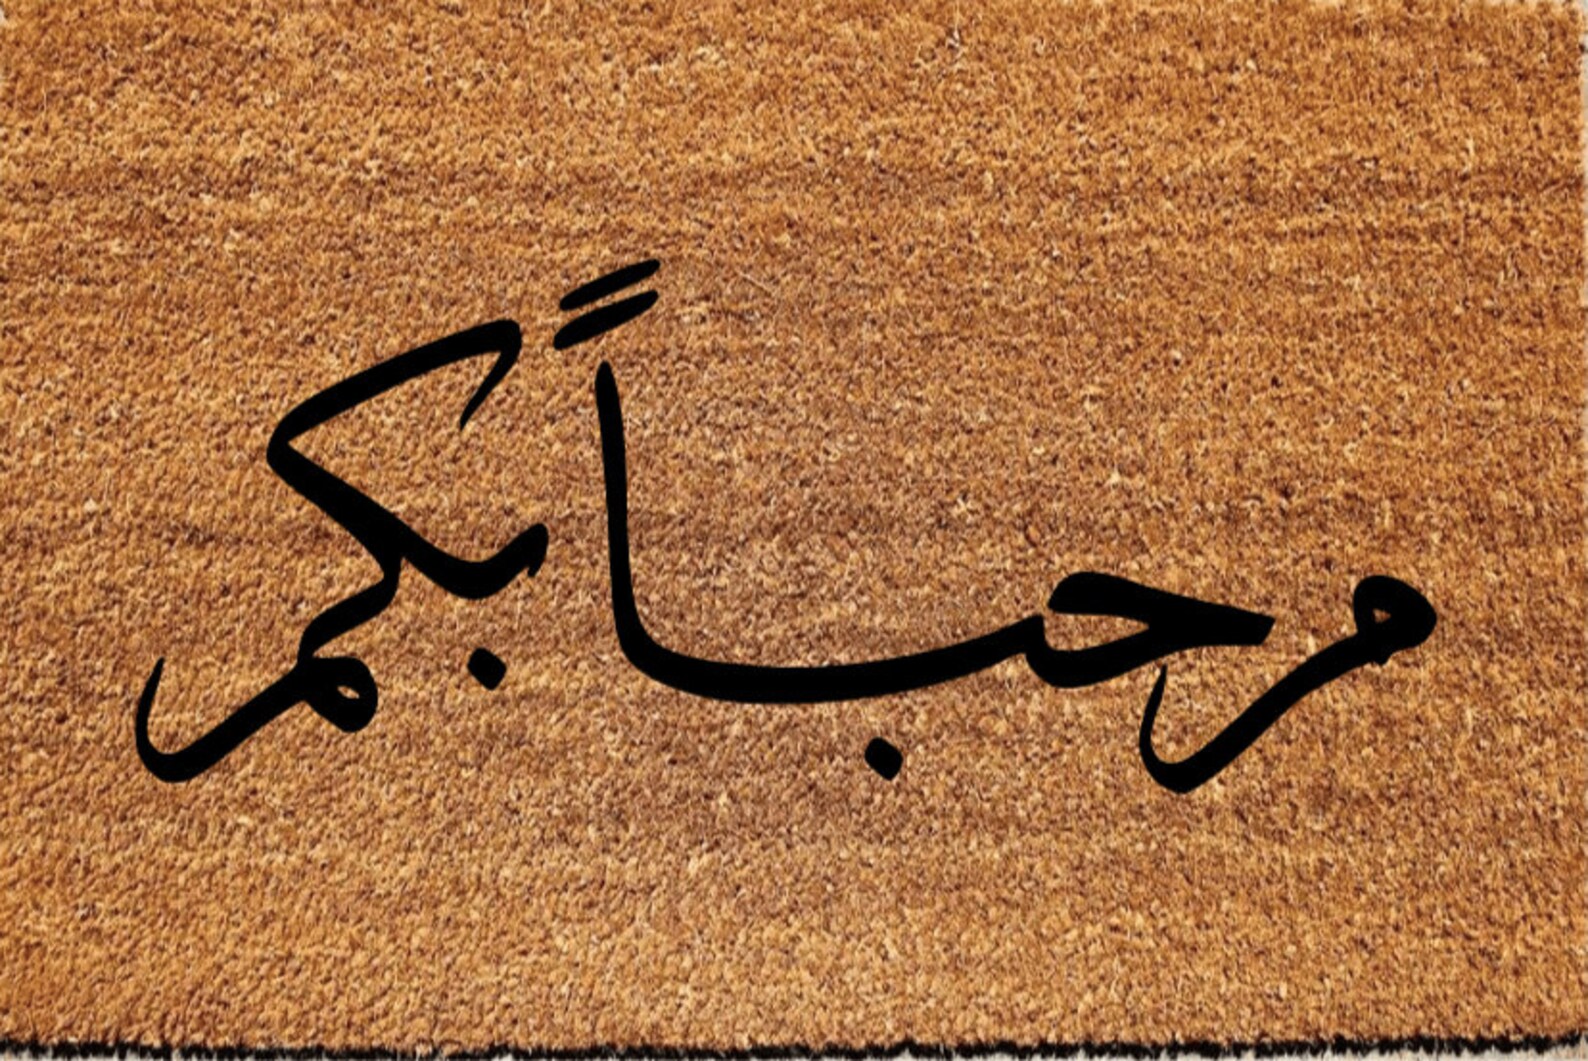 مرحباً بكم